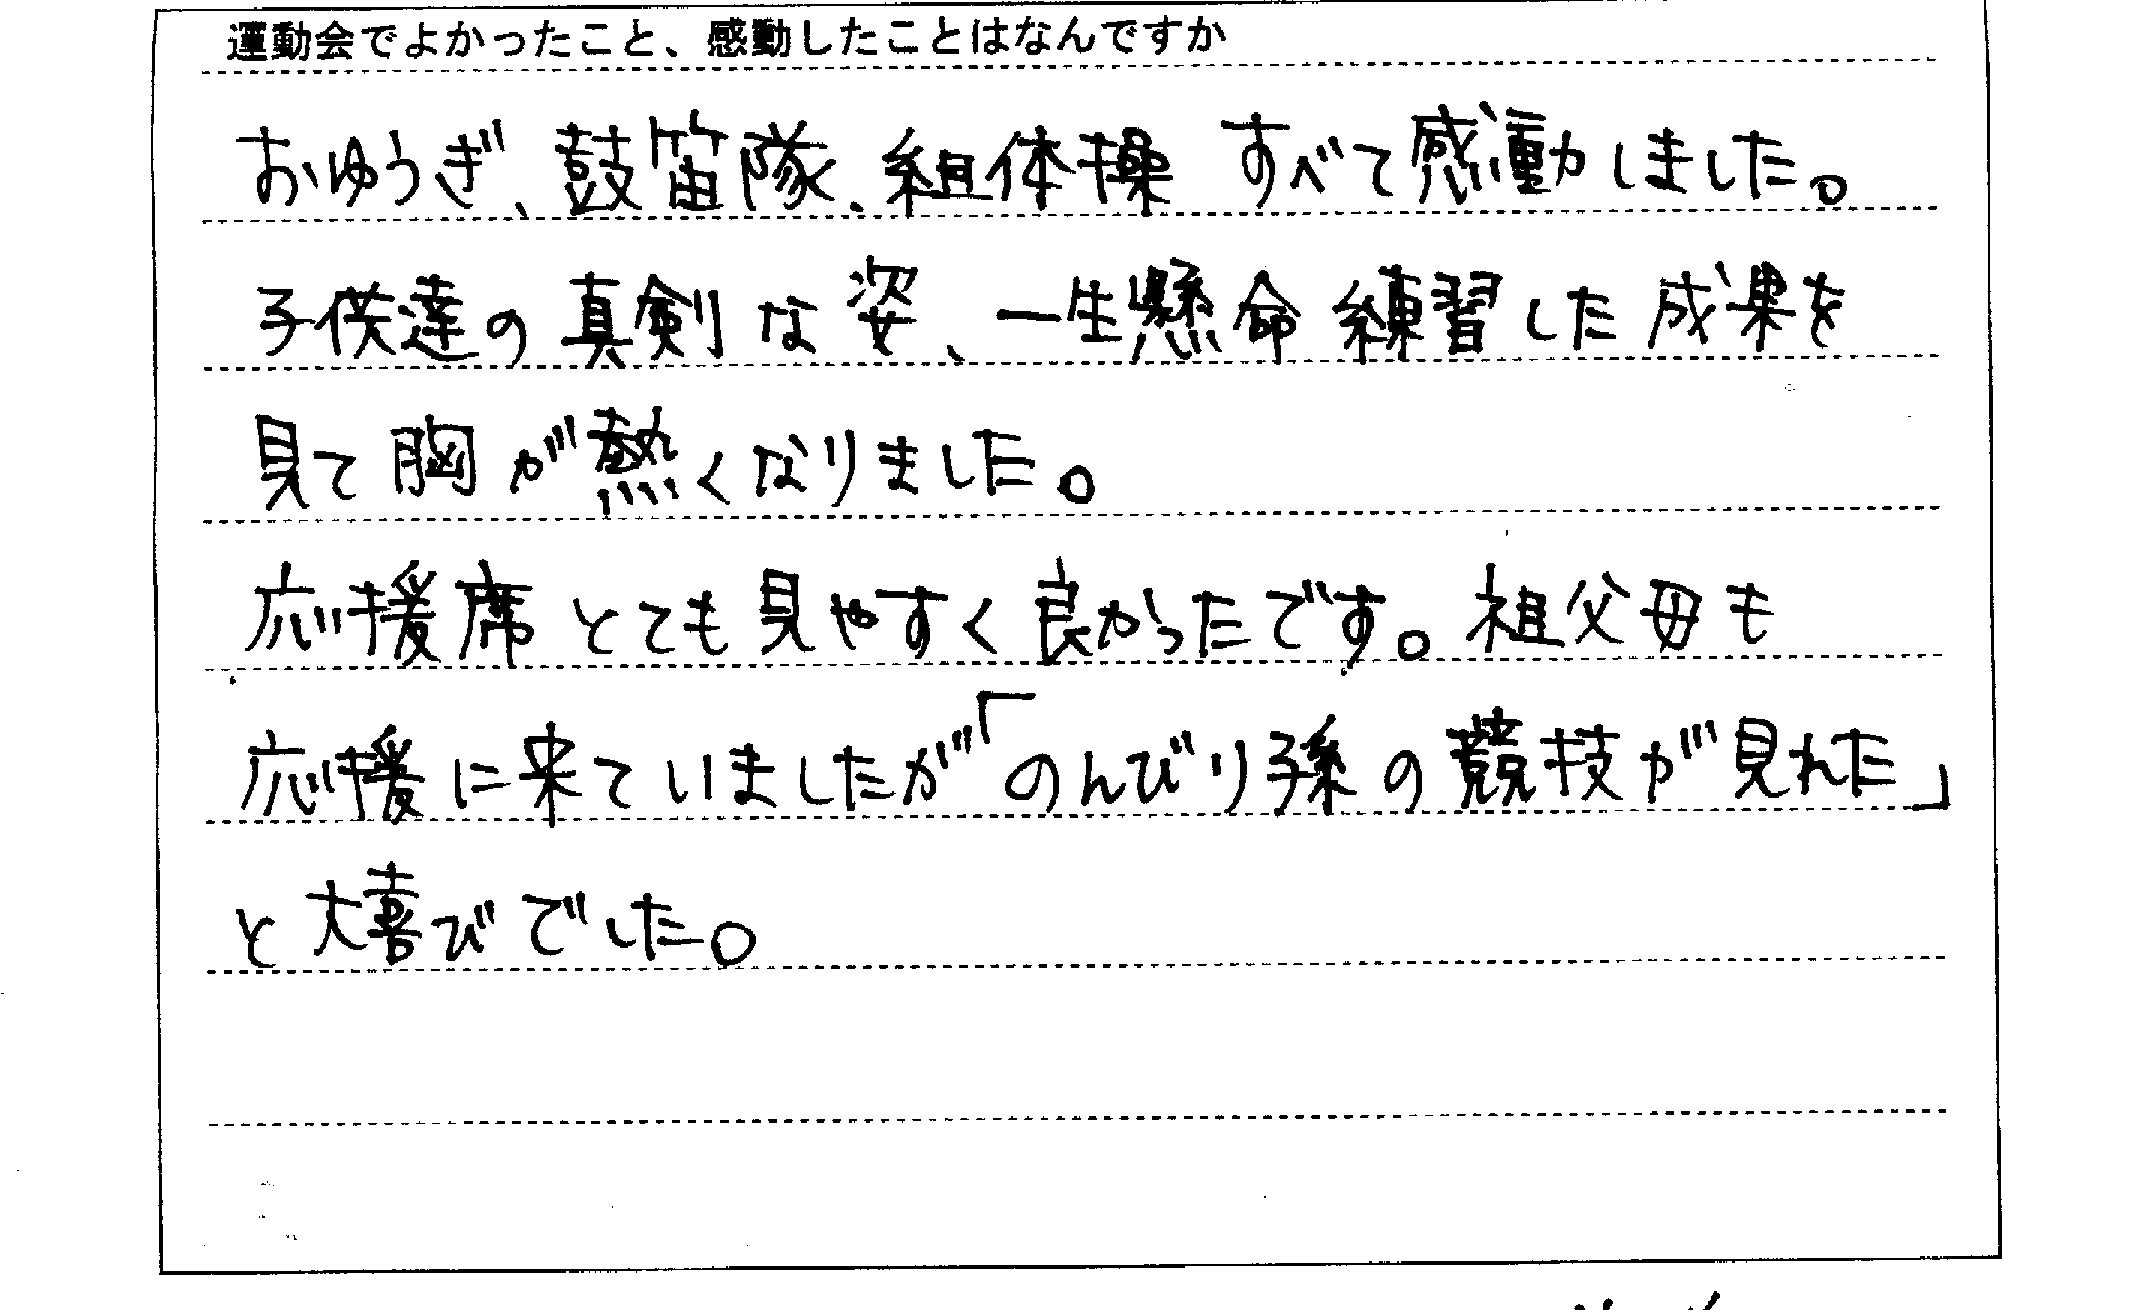 運動会でよかったこと、感動したことはなんですか
おゆうぎ、鼓笛隊、組体操 すべて感動しました。
子供達の真剣な姿、一生懸命練習した成果を
見て胸が熱くなりました。
応援席とても見やすく良かったです。祖父母も
応援に来ていましたが「のんびり孫の競技が見れた」
と大喜びでした。